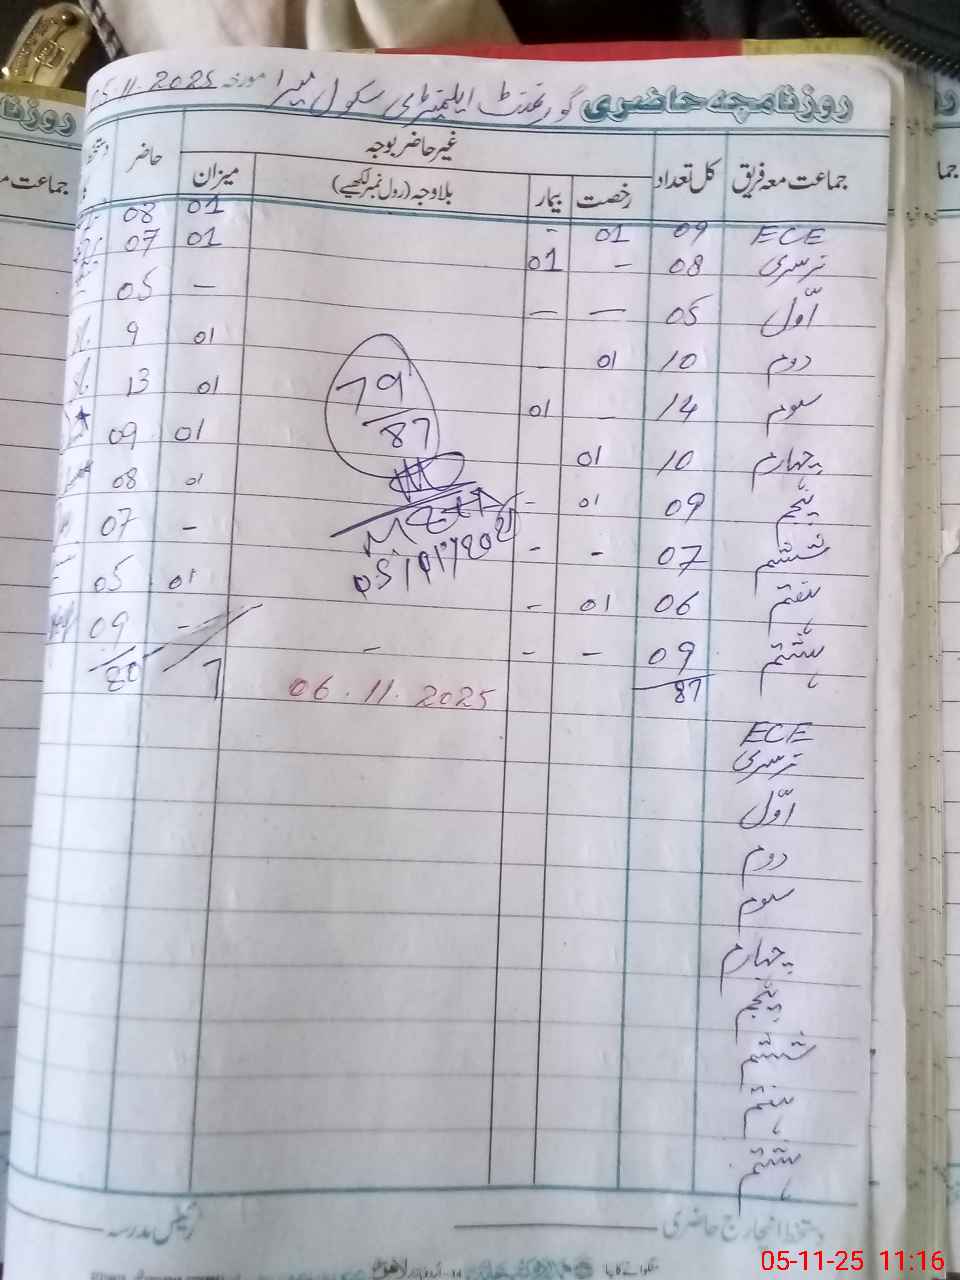 روزنامچہ حاضری گورنمنٹ ایلیمنٹری سکول میرا مورخہ 05.11.2025
جماعت معہ فریق کل تعداد غیر حاضر بوجہ حاضر
رخصت بیمار بلاوجہ (رول نمبر لکھیے) میزان
ECE 09 01 - 01 08
نرسری 08 - 01 01 07
اوّل 05 — — — 05
دوم 10 01 - 01 9
سوم 14 - 01 01 13
چہارم 10 01 01 09
پنجم 09 01 - 01 08
ششم 07 - - - 07
ہفتم 06 01 - 01 05
ہشتم 09 - - - - 09
87 7 80
79
87
06.11.2025
ECE
نرسری
اوّل
دوم
سوم
چہارم
پنجم
ششم
ہفتم
ہشتم
دستخط انچارج حاضری
رئیس مدرسہ
روزنا
جماعت
05-11-25 11:16